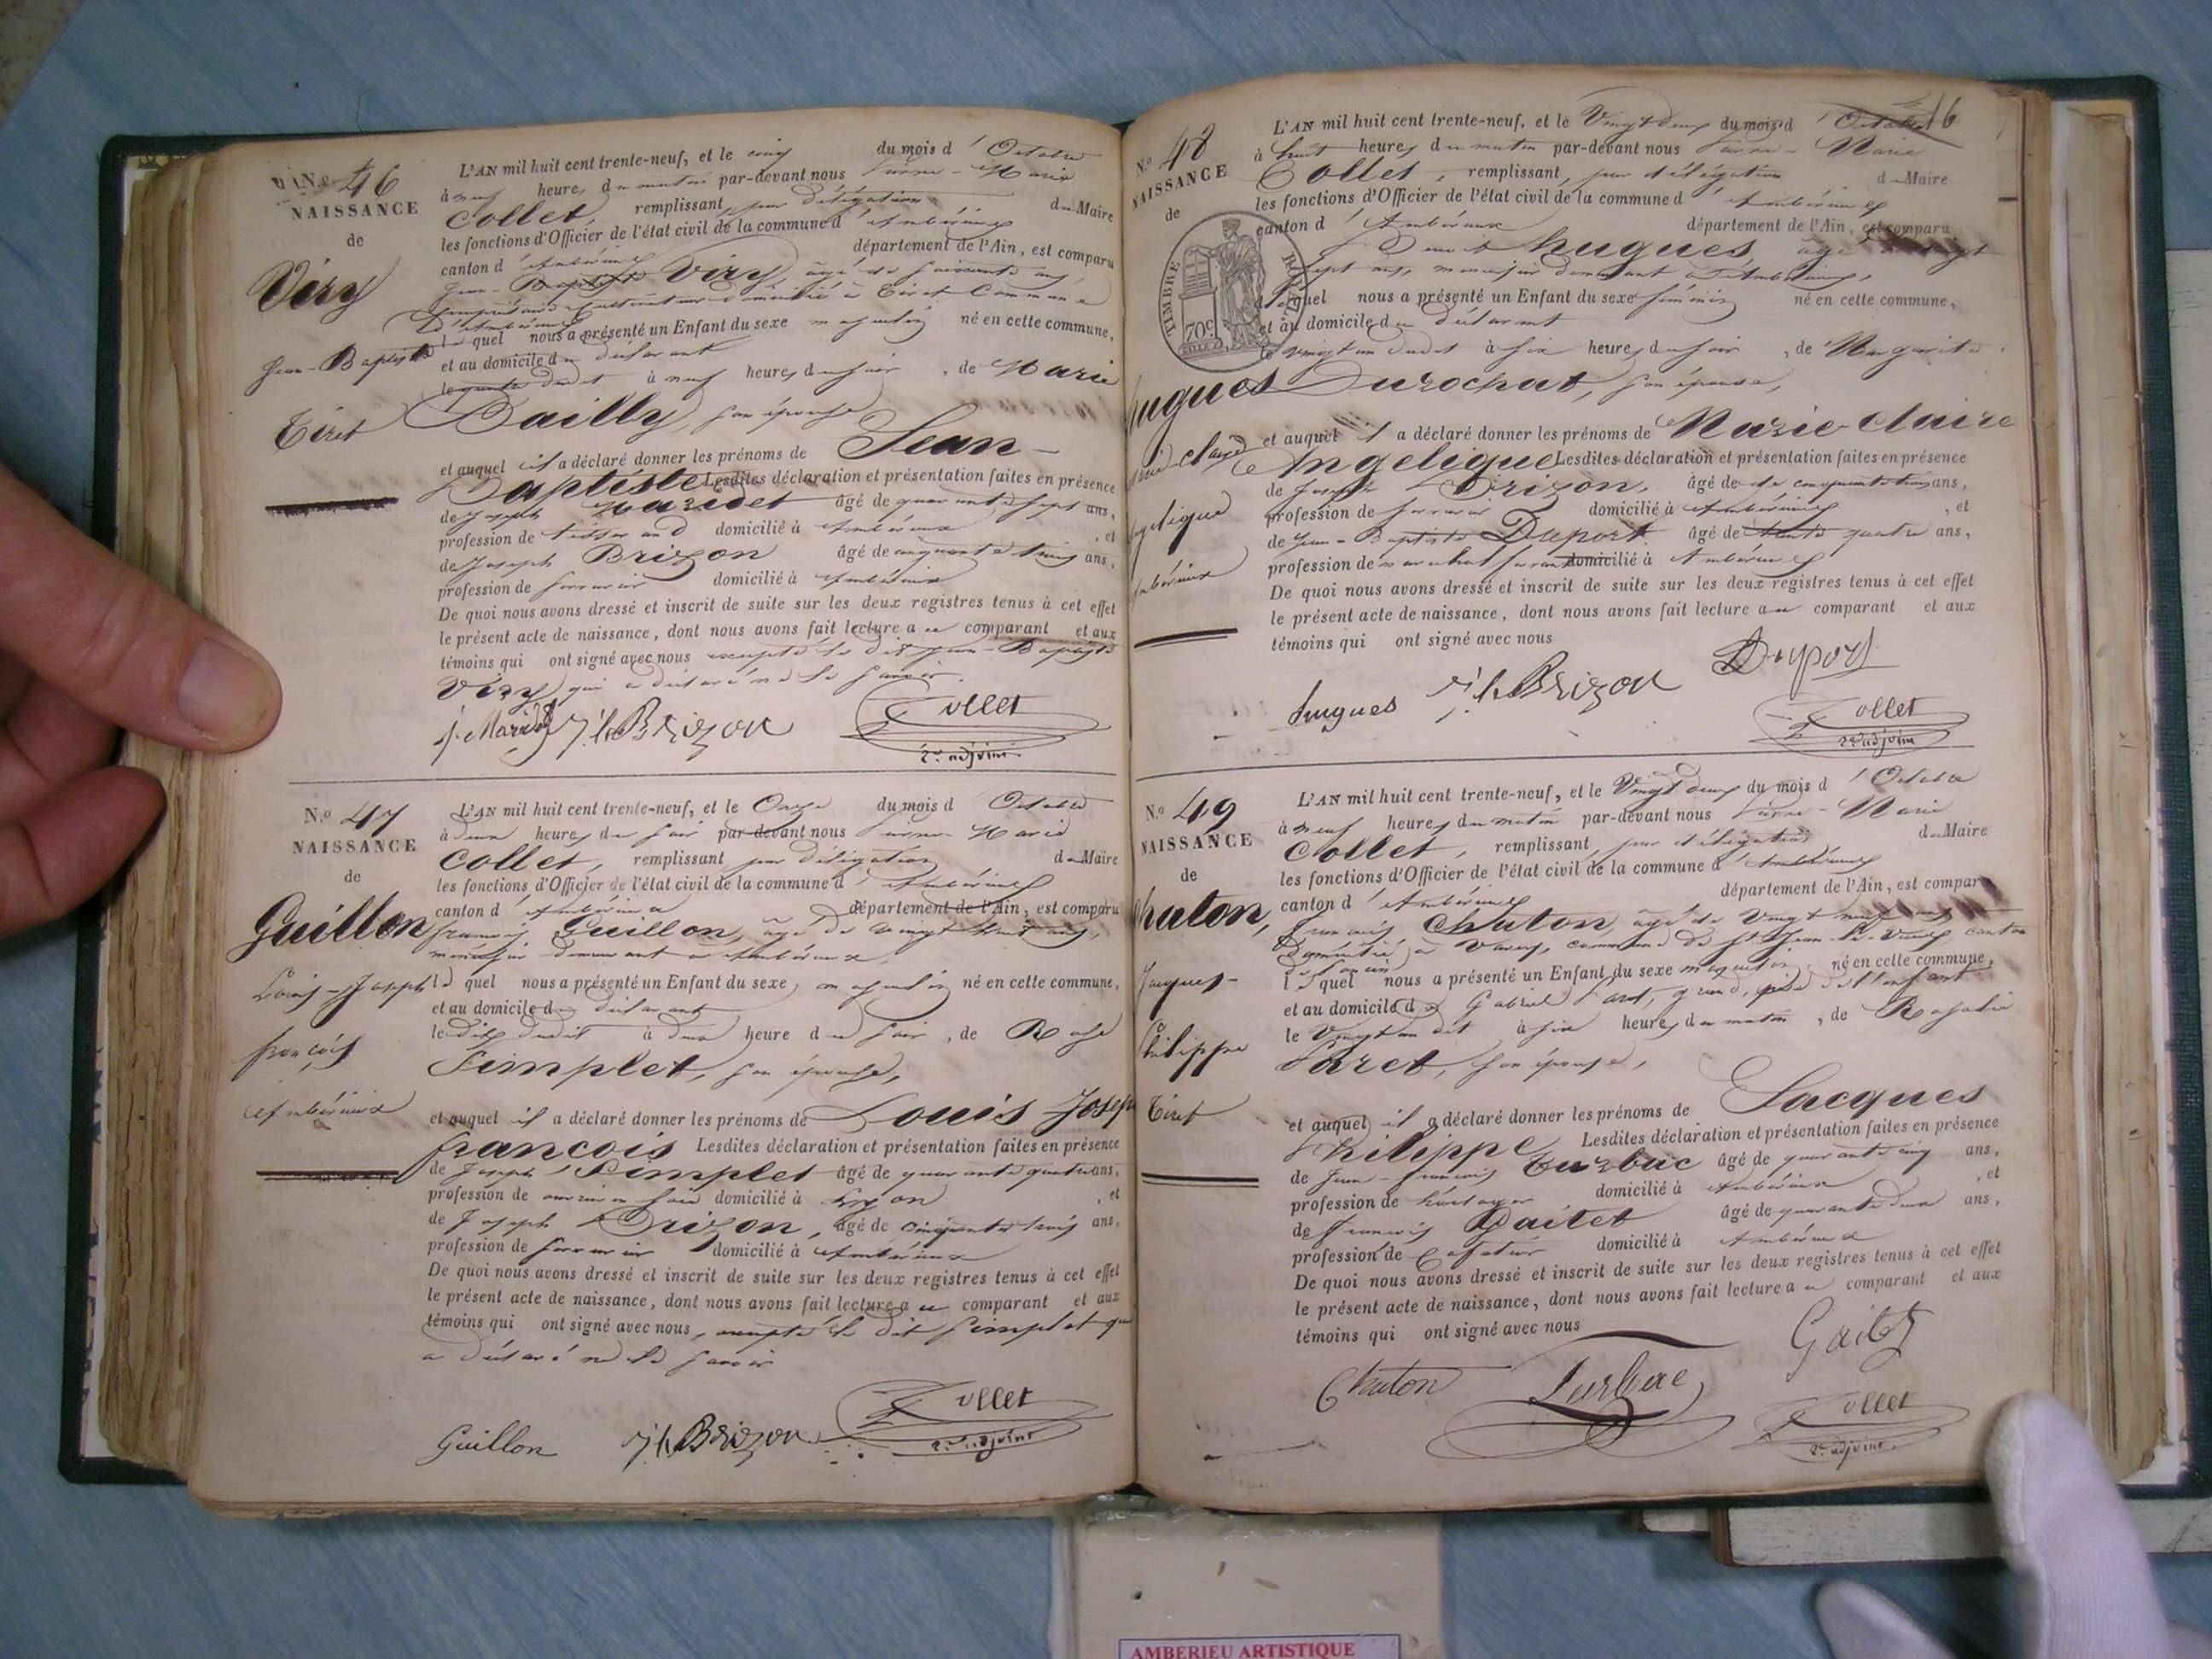 N.º 46
NAISSANCE
de
Viry
Jean-Baptiste
Tiret
L'AN mil huit cent trente-neuf, et le cinq du mois d'Octobre
à neuf heures du matin par-devant nous Pierre-Marie
Collet, remplissant, par délégation du Maire
les fonctions d'Officier de l'état civil de la commune d'Ambérieux
canton d'Ambérieux département de l'Ain, est comparu
Jean-Baptiste Viry, âgé de soixante ans,
propriétaire cultivateur domicilié à Tiret Commune
d'Ambérieux
lequel nous a présenté un Enfant du sexe masculin né en cette commune,
et au domicile du déclarant
le quatre dudit à neuf heures du soir, de Marie
Bailly, son épouse,
et auquel il a déclaré donner les prénoms de Jean-
Baptiste Lesdites déclaration et présentation faites en présence
de Joseph Maridet âgé de quarante sept ans,
profession de tisserand domicilié à Ambérieux, et
de Joseph Brizon âgé de cinquante trois ans,
profession de serrurier domicilié à Ambérieux
De quoi nous avons dressé et inscrit de suite sur les deux registres tenus à cet effet
le présent acte de naissance, dont nous avons fait lecture au comparant et aux
témoins qui ont signé avec nous excepté le dit Jean-Baptiste
Viry qui a déclaré ne le savoir.
J. Maridet Jh Brizon Collet
2e adjoint
N.º 47
NAISSANCE
de
Guillon
Louis-Joseph
françois
Ambérieux
L'AN mil huit cent trente-neuf, et le Onze du mois d Octobre
à deux heures du soir par-devant nous Pierre-Marie
Collet, remplissant par délégation du Maire
les fonctions d'Officier de l'état civil de la commune d'Ambérieux
canton d'Ambérieux département de l'Ain, est comparu
françois Guillon, âgé de vingt huit ans,
menuisier demeurant à Ambérieux,
lequel nous a présenté un Enfant du sexe masculin né en cette commune,
et au domicile du déclarant
le dix dudit à deux heure du soir, de Rose
Simplet, son épouse,
et auquel il a déclaré donner les prénoms de Louis Joseph
françois Lesdites déclaration et présentation faites en présence
de Joseph Simplet âgé de quarante quatre ans,
profession de ouvrier en soie domicilié à Lyon, et
de Joseph Brizon, âgé de cinquante trois ans,
profession de serrurier domicilié à Ambérieux
De quoi nous avons dressé et inscrit de suite sur les deux registres tenus à cet effet
le présent acte de naissance, dont nous avons fait lecture au comparant et aux
témoins qui ont signé avec nous, excepté le dit Simplet qui
a déclaré ne le savoir
Guillon Jh Brizon Collet
2e adjoint
16
N.º 48
NAISSANCE
de
TIMBRE ROYAL
70c
Hugues
Marie-Claire
Angélique
Ambérieux
L'AN mil huit cent trente-neuf, et le Vingt deux du mois d'Octobre
à huit heures du matin par-devant nous Pierre-Marie
Collet, remplissant, par délégation du Maire
les fonctions d'Officier de l'état civil de la commune d'Ambérieux
canton d'Ambérieux département de l'Ain, est comparu
hugues, âgé de vingt
sept ans, menuisier demeurant à Ambérieux,
lequel nous a présenté un Enfant du sexe féminin né en cette commune,
et au domicile du déclarant
le vingt un dudit à six heures du soir, de Margarite
Durochat, son épouse,
et auquel il a déclaré donner les prénoms de Marie Claire
Angélique Lesdites déclaration et présentation faites en présence
de Joseph Brizon, âgé de cinquante trois ans,
profession de serrurier domicilié à Ambérieux, et
de Jean-Baptiste Duport âgé de trente quatre ans,
profession de marechal ferrant domicilié à Ambérieux
De quoi nous avons dressé et inscrit de suite sur les deux registres tenus à cet effet
le présent acte de naissance, dont nous avons fait lecture au comparant et aux
témoins qui ont signé avec nous
hugues Jh Brizon Duport
Collet
2e adjoint
N.º 49
NAISSANCE
de
Chuton,
Jacques-
Philippe
Tiret
L'AN mil huit cent trente-neuf, et le Vingt deux du mois d'Octobre
à neuf heures du matin par-devant nous Pierre-Marie
Collet, remplissant, par délégation du Maire
les fonctions d'Officier de l'état civil de la commune d'Ambérieux
canton d'Ambérieux département de l'Ain, est comparu
françois Chuton, âgé de Vingt neuf ans
domicilié à Varey, commune de St Jean-le-Vieux canton
lequel nous a présenté un Enfant du sexe masculin né en cette commune,
et au domicile de Gabriel Paret, grand père de l'enfant
le Vingt un dit à six heures du matin, de Rosalie
Paret, son épouse,
et auquel il a déclaré donner les prénoms de Jacques
Philippe Lesdites déclaration et présentation faites en présence
de Jean-françois Turbuc âgé de quarante cinq ans,
profession de horloger domicilié à Ambérieux, et
de françois Gaitet âgé de quarante deux ans,
profession de Cafetier domicilié à Ambérieux
De quoi nous avons dressé et inscrit de suite sur les deux registres tenus à cet effet
le présent acte de naissance, dont nous avons fait lecture au comparant et aux
témoins qui ont signé avec nous
Gaitet
Chuton Turbuc Collet
2e adjoint
AMBERIEU ARTISTIQUE